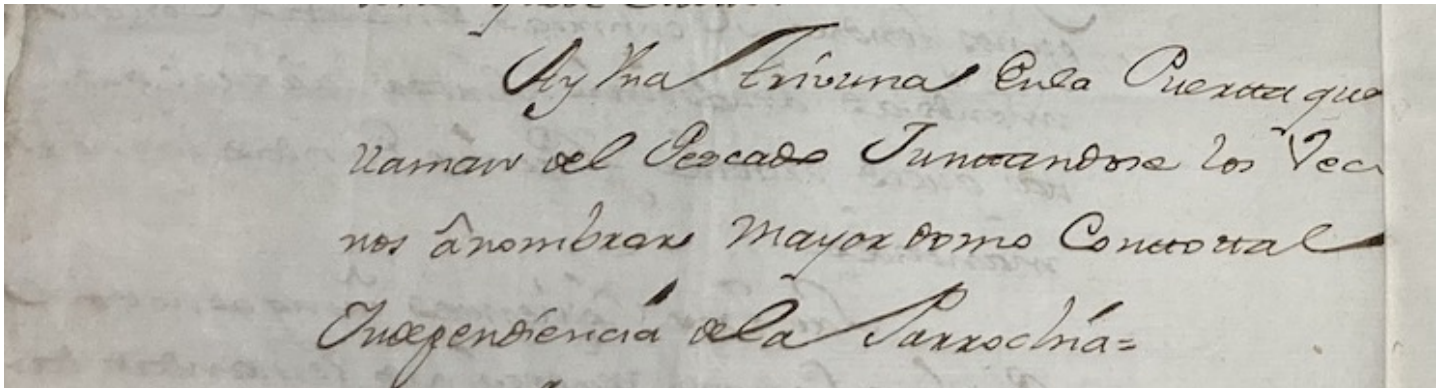 Ay Vna Trivuna Enla Puerta que
llaman del Pescado Juntandose los Veci
nos â nombrar Mayordomo Con total
Independiencia dela Parrochia=